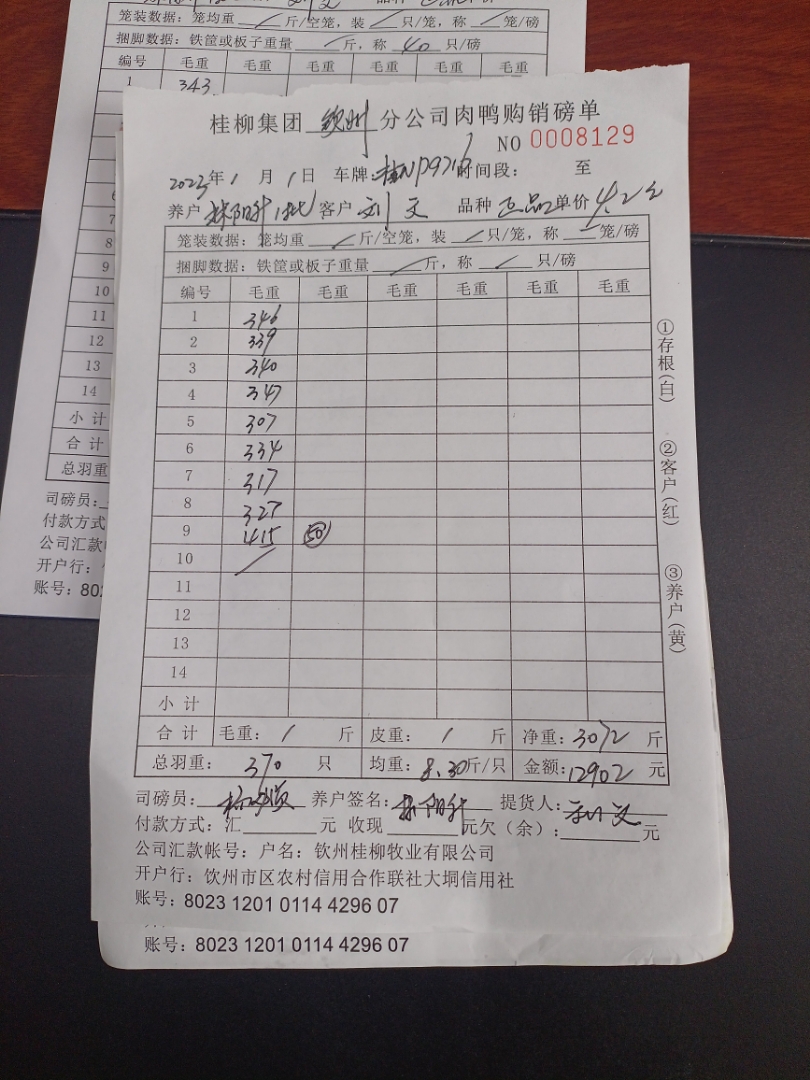 笼装数据：笼均重 斤/空笼，装 只/笼，称 笼/磅
捆脚数据：铁筐或板子重量 斤，称 40 只/磅
编号 毛重 毛重 毛重 毛重 毛重 毛重
1 343
桂柳集团 钦州 分公司肉鸭购销磅单
NO 0008129
2023年1月1日 车牌： 时间段： 至
养户 林阳升 客户 刘文 品种 正品 单价 4.2元
笼装数据：笼均重 斤/空笼，装 只/笼，称 笼/磅
捆脚数据：铁筐或板子重量 斤，称 只/磅
编号 毛重 毛重 毛重 毛重 毛重 毛重
1 346
2 339
3 340
4 347
5 307
6 334
7 317
8 327
9 415 50
10
11
12
13
14
小计
合计 毛重： / 斤 皮重： / 斤 净重：3072 斤
总羽重： 370 只 均重：8.30斤/只 金额：12902 元
司磅员： 养户签名：林阳升 提货人：刘文
付款方式：汇 元 收现 元欠（余）： 元
公司汇款帐号：户名：钦州桂柳牧业有限公司
开户行：钦州市区农村信用合作联社大垌信用社
账号：8023 1201 0114 4296 07
账号：8023 1201 0114 4296 07
①存根（白）
②客户（红）
③养户（黄）
8
9
10
11
12
13
14
小计
合计
总羽重
司磅员：
付款方式
公司汇款
开户行：
账号：802